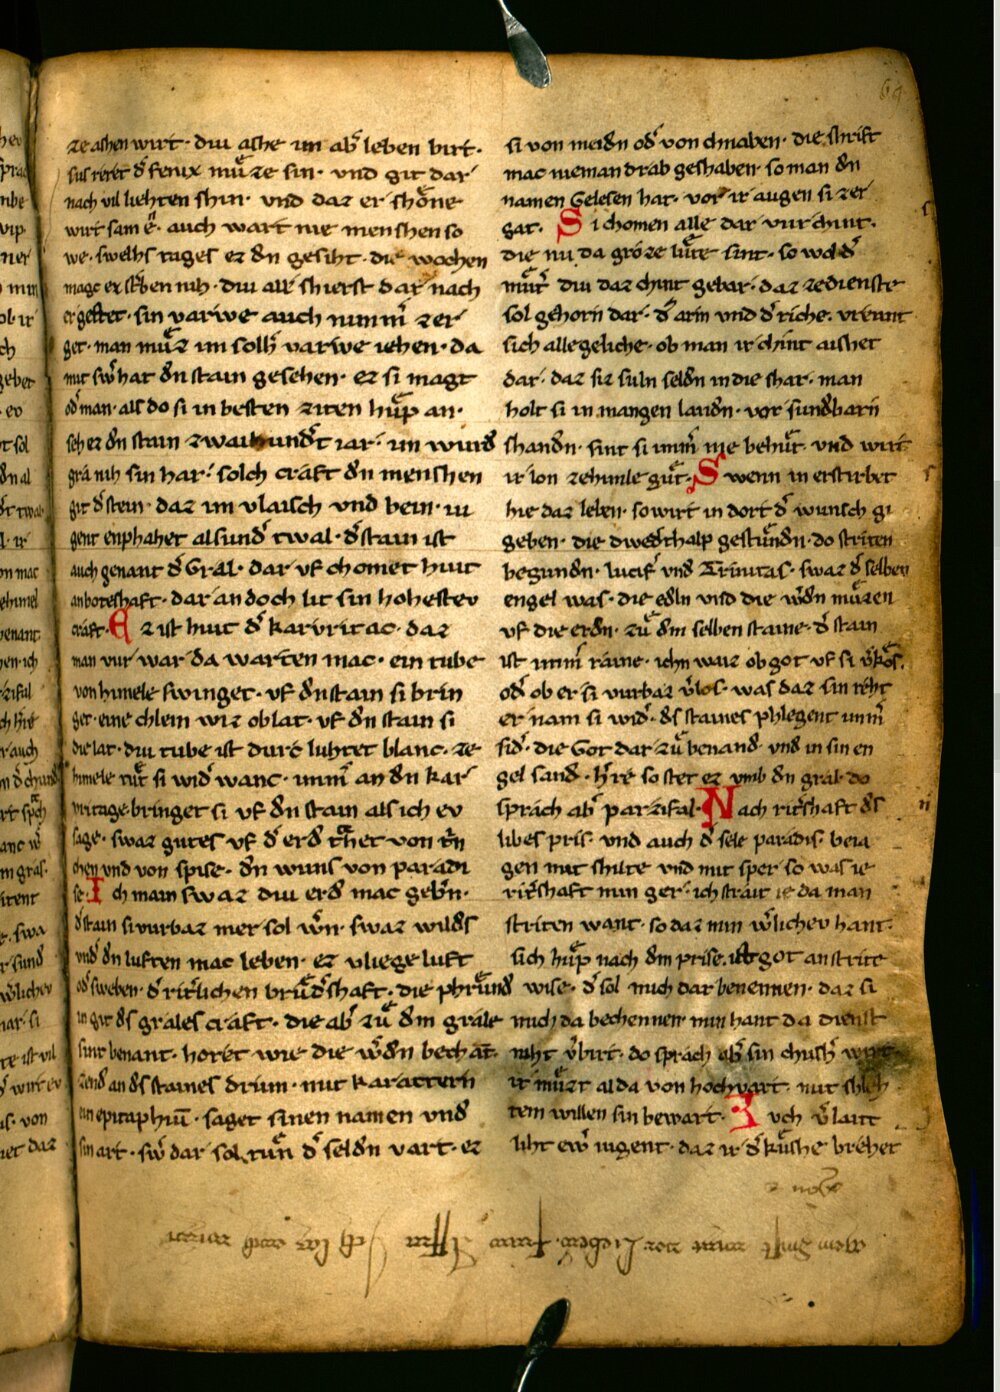 ze aschen wirt · diu asche im abˀ leben birt ·
sus reret dˀ fenix muͦze sin · vnd git dar
nach vil liehten shin · vnd daz er shoͤne
wirt sam ê · auch wart nie menshen so
we · swelhs tages ez dn gesiht · die wochen
magc ex stˀben niht · diu alleˀ shierst dar nach
ergestet · sin varwe auch nimmˀ zer
get · man muͦz im sollhˀ varwe iehen · da
mit swˀ hat dn stain gesehen · ez si magt
odˀ man · als do si in besten ziten huͦp an ·
seh ez dn stain zwaihundˀt iar · im wurdˀ
gra niht sin har · solch craft dn menshen
git dˀ stein · daz im vlaisch vnd bein · iu
gent enphahet alsundˀ twal · dˀ stain ist
auch genant dˀ Gral · dar vf chomet hiut
an boteshaft · dar an doch lit sin hohestev
craft · Ez ist hiut dˀ karvritac · daz
man vur war da warten mac · ein tube
von himele swinget · vf dn stain si brin
get · eine chlein wiz oblat · vf dn stain si
die lat · diu tube ist durc luhtet blanc · ze
himele tuͦt si widˀ wanc · immˀ an dn kar
vritage · bringet si vf dn stain als ich ev
sage · swaz gutes vf dˀ erdˀ
chen vnd von spise · dn wuns von paradi
se · Ich main swaz diu erdˀ mac gebˀn ·
dˀ stain si vurbaz mer sol wˀn · swaz wildˀs
vndˀ dn luften mac leben · ez vliege luft
odˀ sweben · dˀ ritˀlichen bruͦdˀshaft · die phruͦndˀ
in git dˀs grales craft · die abˀ zuͦ dˀm grale
sint benant · horet wie die wˀdn bechāt ·
zendˀ an dˀs staines drum · mit karactern
ein epitaphiū · saget sinen namen vndˀ
sin art · swˀ dar sol tuͦn dˀ seldˀn vart · ez
si von meidˀn odˀ von chnaben · die schrift
mac nieman drab geshaben · so man dn
namen Gelesen hat · vor ir augen si zer
gat · Si chomen alle dar vur chint ·
die nu da groze luͤte sint · so wol dˀ
muͦtˀ diu daz chint gebar · daz ze dienste
sol gehorn dar · dˀ arm vnd dˀ riche · vrevnt
sich alle geliche · ob man ir chint aishet
dar · daz siz suln seldˀn in die shar · man
holt si in mangen landˀn · vor sundˀbarn
shandˀn · sint si immˀ me behuͦt · vnd wirt
ir lon ze himle guͦt · Swenn in erstirbet
hie daz leben · so wirt in dort dˀ wunsch gi
geben · die dwedˀthalp gestuͦndˀn · do striten
begundˀn · lucifˀ vnd Trinitas · swaz dˀ selben
engel was · die edˀln vnd die wˀdn muͦzen
vf die erdˀn · zuͦ dˀm selben staine · dˀ stain
ist immˀ raine · ichn waiz ob got vf si vˀkos ·
odˀ ob er si vurbaz vˀlos · was daz sin reht
er nam si widˀ · dˀs staines phlegent immˀ
sidˀ · die Got dar zuͦ benandˀ · vnd in sin en
gel sandˀ · hˀre so stet ez vmb dn gral · do
sprach abˀ parzifal · Nach ritˀshaft dˀs
libes pris · vnd auch dˀ sele paradis · beia
gen mit shilte vnd mit sper · so was ie
ritˀshaft min ger · ich strait ie da man
striten want · so daz min wˀlichev hant ·
sich huͦp nach dˀm prise · ist got an strite
wise · dˀ sol mich dar benennen · daz si
mich da bechennen · min hant da dienst
niht vˀbirt · do sprach abˀ sin chushˀ wirt
ir muͦzt alda von hochvart · mit shleh
tem willen sin bewart · Ev ch vˀlait
liht ewˀ iugent · daz ir dˀ kuͤshe brehet